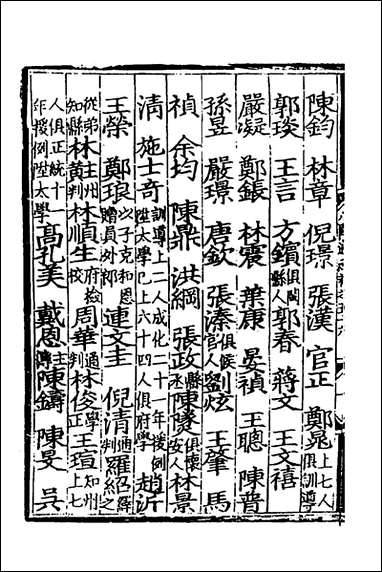 陳鈞 林章 倪璟 張漢 官正 鄭晃上七人俱訓導
郭琰 王言 方鑌俱閩縣人郭春 蔣文 王文禧
嚴凝 鄭鋹 林震 葉康 晏禎 王聰 陳普
孫昱 嚴璟 唐欽 張溱俱候官人劉炫 王肇 馬
禎 余均 陳鼎 洪綱 張政縣丞陳賸俱懷安人林景
清 施士奇訓導上二人成化二十一年援例陞太學已上六十四人俱府學趙沂
王榮 鄭琅以子克和恩贈員外郎連文圭 倪清通判羅
從弟知縣林黄住州判林順生府檢校周華通判林俊學正王瑄知州上七
人俱正統十年援例陞太學高孔美 戴恩主簿陳鑄 陳旻 吳